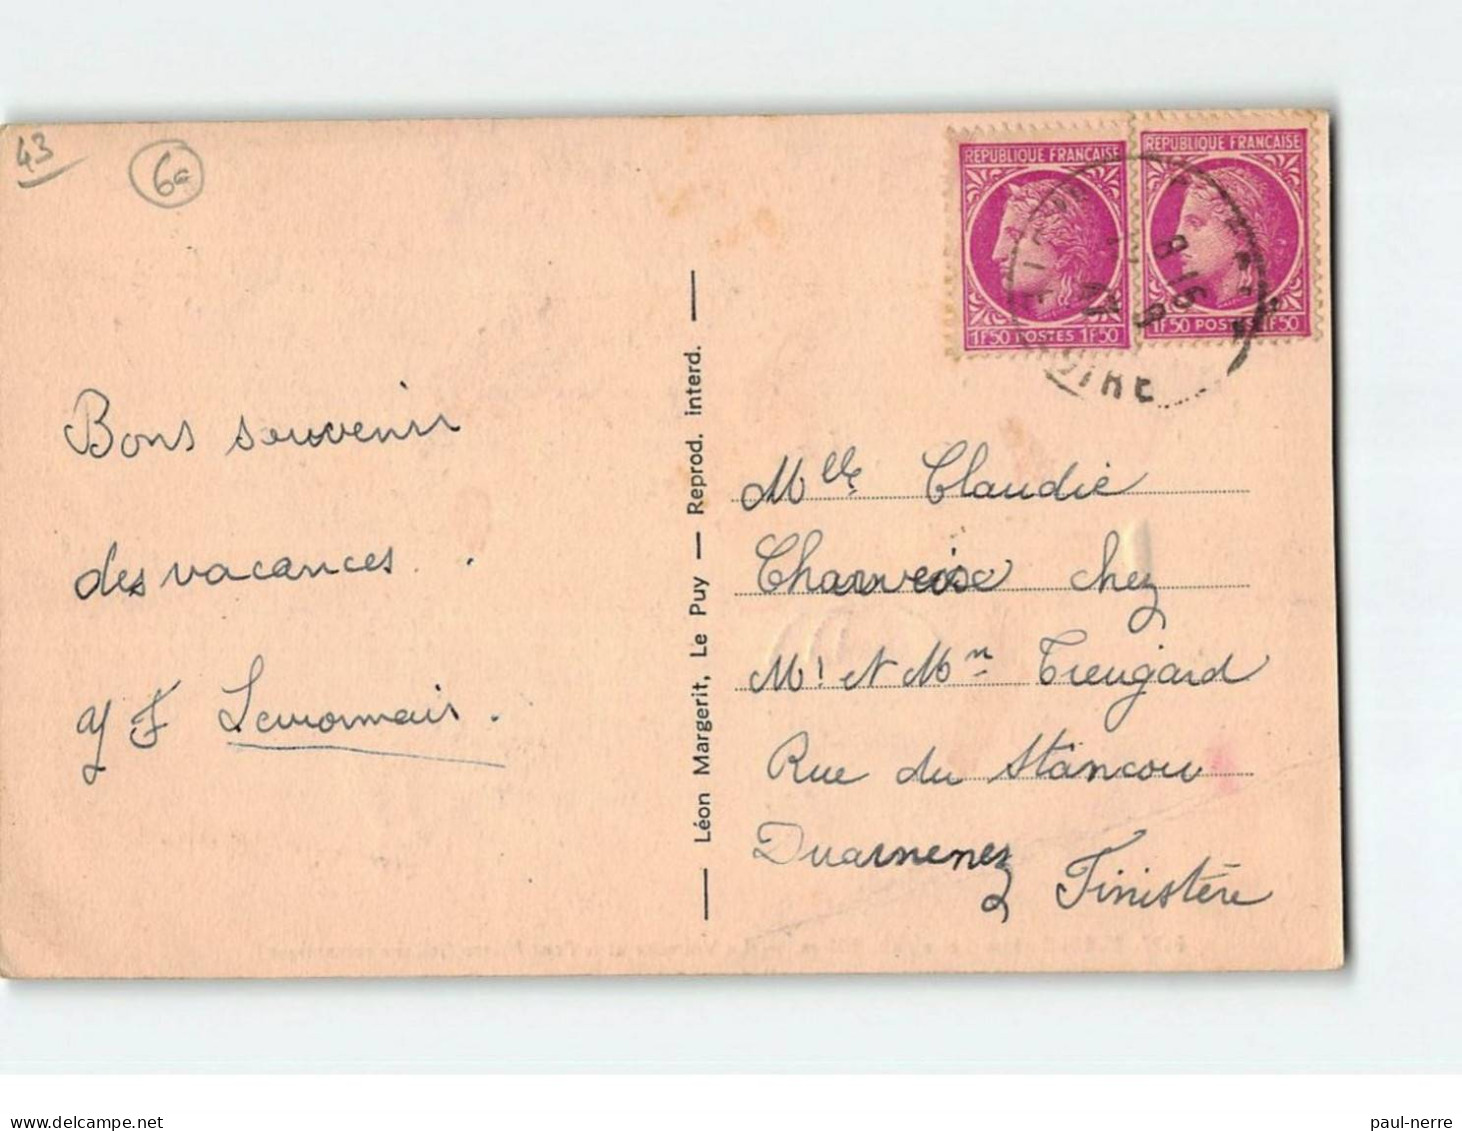 43
6€
RÉPUBLIQUE FRANÇAISE
1F50 POSTES 1F50
RÉPUBLIQUE FRANÇAISE
1F50 POSTES 1F50
Bons souvenir
des vacances.
Léon Margerit, Le Puy — Reprod. interd.
Mlle Claudie
chez
Mr et Mm Treugard
Rue du Stancou
Duarnenez
Finistère
paul-nerre